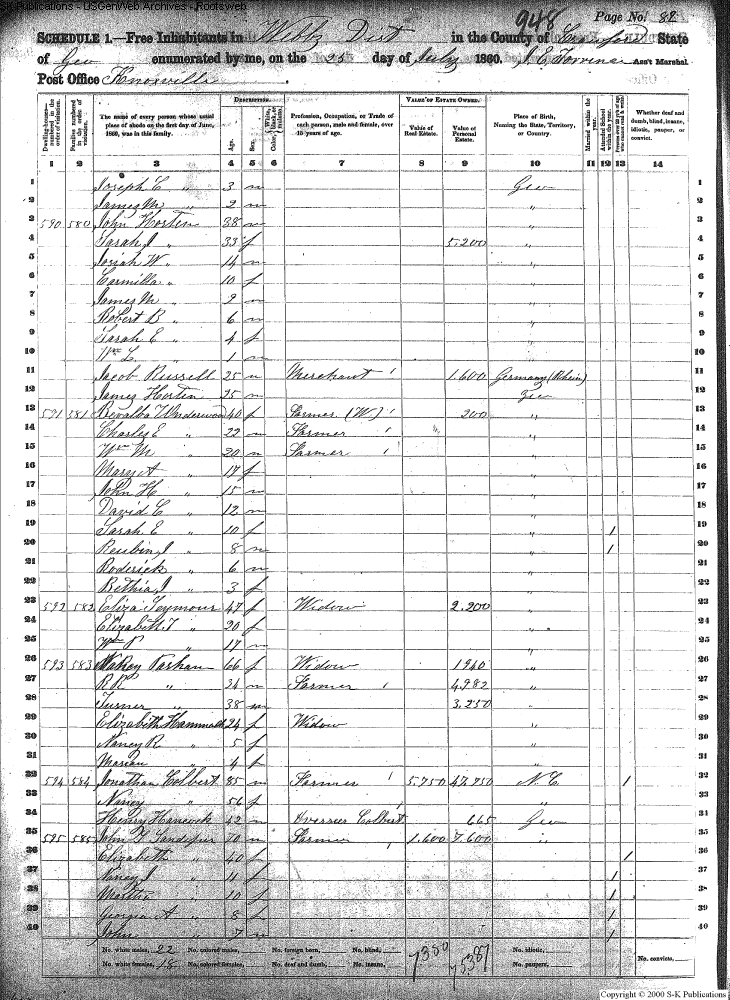 S-K Publications - USGenWeb Archives - Rootsweb
948 Page No. 82
SCHEDULE 1.—Free Inhabitants in Webbs Dist in the County of Crawford State
of Geo enumerated by me, on the 25 day of July 1860. Ass't Marshal.
Post Office Knoxville
Dwelling-houses—numbered in the order of visitation.
Families numbered in the order of visitation.
The name of every person whose usual place of abode on the first day of June, 1860, was in this family.
DESCRIPTION.
Age.
Sex.
Color, White, black, or mulatto.
Profession, Occupation, or Trade of each person, male and female, over 15 years of age.
VALUE OF ESTATE OWNED.
Value of Real Estate.
Value of Personal Estate.
Place of Birth, Naming the State, Territory, or Country.
Married within the year.
Attended School within the year.
Whether deaf and dumb, blind, insane, idiotic, pauper, or convict.
1 2 3 4 5 6 7 8 9 10 11 12 13 14
1 Joseph C " 3 m Geo 1
2 James M " 2 m " 2
3 590 580 John Horten 38 m " 3
4 Sarah J " 33 f 5.200 " 4
5 Josiah W. " 14 m " 5
6 Carmilla " 10 f " 6
7 James M " 9 m " 7
8 Robert B " 6 m " 8
9 Sarah E " 4 f " 9
10 Wm L. " 1 m " 10
11 Jacob Russell 25 m Merchant 1.600 Germany (Rhein) 11
12 James Horten 25 m Geo 12
13 591 581 Underwood 40 f Farmer (W) 200 " 13
14 Charles E " 22 m Farmer " 14
15 Wm M " 20 m Farmer " 15
16 Mary A " 17 f " 16
17 John H " 15 m " 17
18 David C " 12 m " 18
19 Sarah E " 10 f " 1 19
20 Reubin J " 8 m " 1 20
21 Roderick " 6 m " 21
22 Bethia J " 3 f " 22
23 592 582 Eliza Seymour 47 f Widow 2.200 " 23
24 Elizabeth T " 20 f " 24
25 Wm P " 17 m " 25
26 593 583 Parham 66 f Widow 1940 " 26
27 R R " 34 m Farmer 4.982 " 27
28 Turner " 38 m 3.250 " 28
29 Elizabeth Hammald 24 f Widow " 29
30 Nancy R " 5 f " 30
31 Marian " 4 f 31
32 594 584 Jonathan Colbert 85 m Farmer 5.750 47.750 N.C. 1 32
33 Nancy " 56 f " 33
34 Henry Hancock 42 m Overseer Colbert 665 Geo 34
35 595 585 John Sandefur 70 m Farmer 1.600 7.600 " 35
36 Elizabeth " 40 f 1 36
37 Nancy J " 11 f 1 37
38 Martha " 10 f 1 38
39 Georgia A " 8 f 1 39
40 John " 7 m 1 40
No. white males, 22 No. colored males, No. foreign born, No. blind, 7350 75387 No. idiotic,
No. white females, 18 No. colored females, No. deaf and dumb, No. insane, No. paupers, No. convicts,
Copyright © 2000 S-K Publications